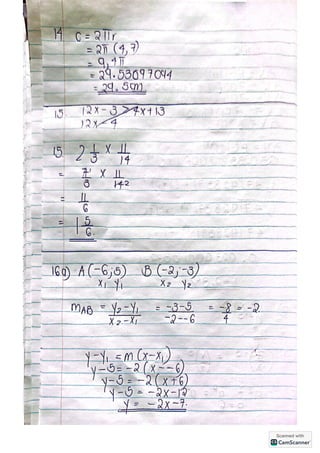 14 C = 2πr
= 2π (4,7)
= 9,4π
= 29.53097094
= 29.5cm
15. 12x - 3 > 4x + 13
12x - 4
15. 2 1/3 × 11/14
= 7/3 × 11/14 2
= 11/6
= 1 5/6
16a) A(-6;5) B(-2;-3)
x₁ y₁ x₂ y₂
mAB = y₂-y₁/x₂-x₁ = -3-5/-2--6 = -8/4 = -2
y-y₁ = m(x-x₁)
y-5 = -2(x--6)
y-5 = -2(x+6)
y-5 = -2x-12
y = -2x-7.
Scanned with
CS CamScanner